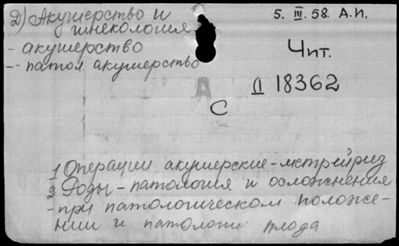 Д) Акушерство и
гинекология
- акушерство
-- патол акушерство
5. III. 58. А.И.
Чит.
Д 18362
А
С
1 Операции акушерские - метрейриз
2 Роды - патология и осложнения
- при патологическом положе-
нии и патологи плода